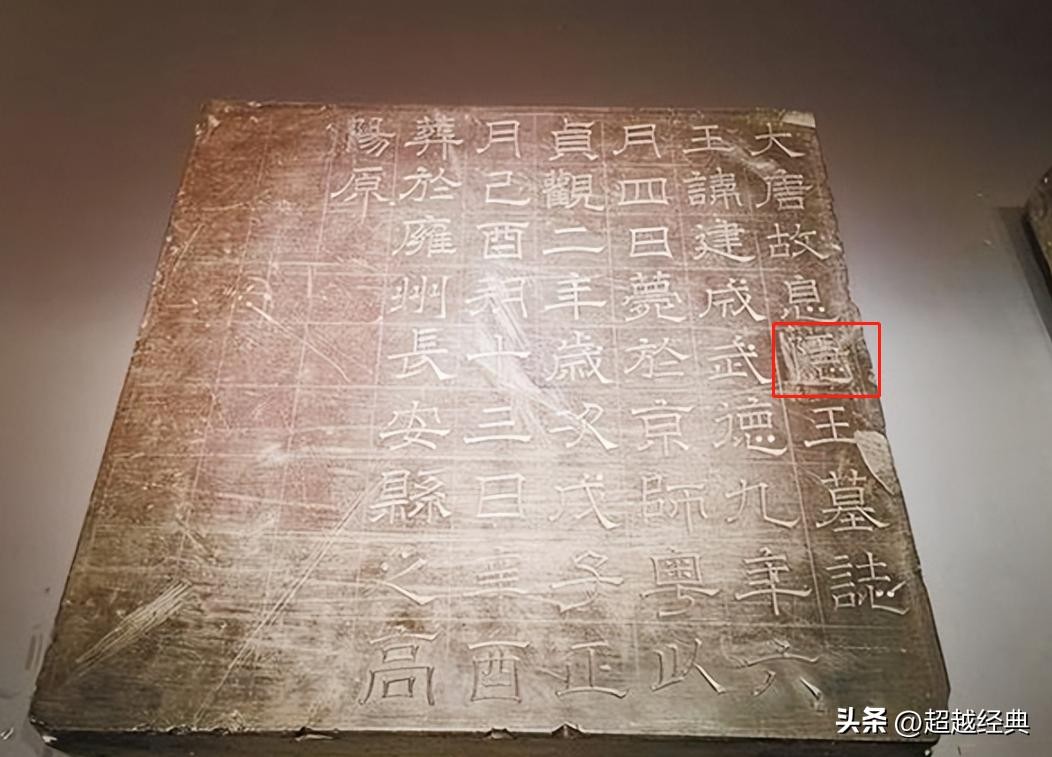 大唐故息隱王墓誌
王諱建成武德九年六
月四日薨於京師粵以
貞觀二年歲次戊子正
月己酉朔十三日辛酉
葬於雍州長安縣之高
陽原
头条 @超越经典